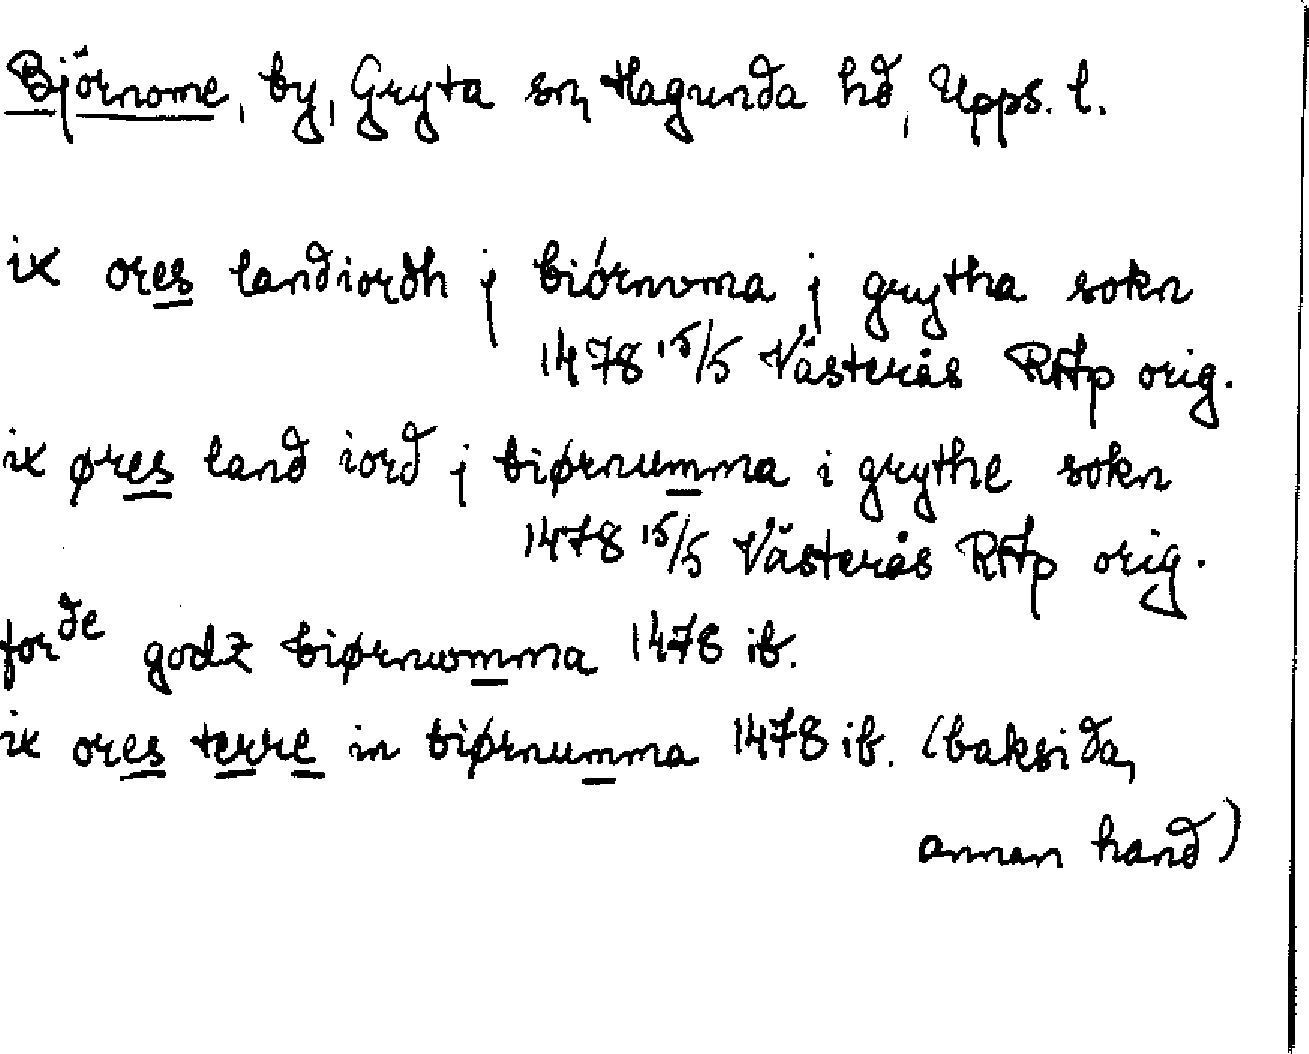 Björnome, by, Gryta sn, Hagunda hd, Upps. l.
ix ores landiordh j biórnvma j grytha sokn
1478 15/5 Västerås RAp orig.
ix øres land iord j biørnumma i grythe sokn
1478 15/5 Västerås RAp orig.
forde godz biørnwmma 1478 ib.
ix ores terre in biørnumma 1478 ib. (baksida,
annan hand)